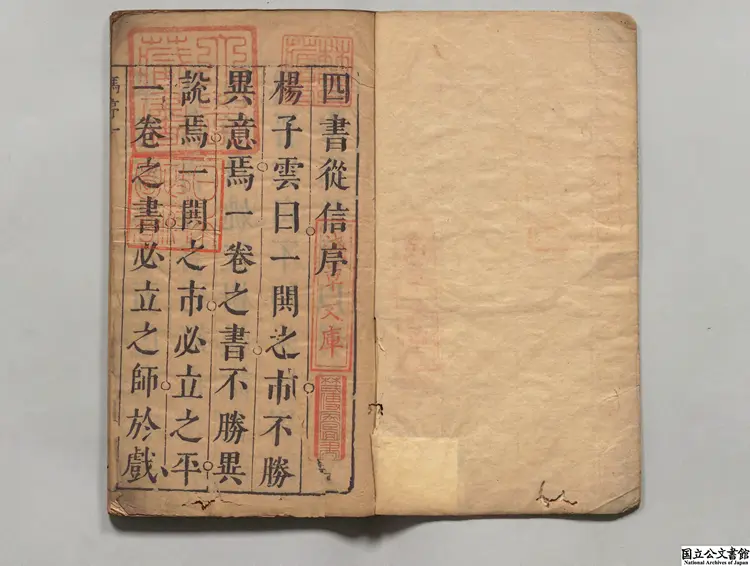 四書從信序
楊子雲曰一閧之市不勝
異意焉一卷之書不勝異
說焉一閧之市必立之平
一卷之書必立之師於戲
文庫
国立公文書館
National Archives of Japan